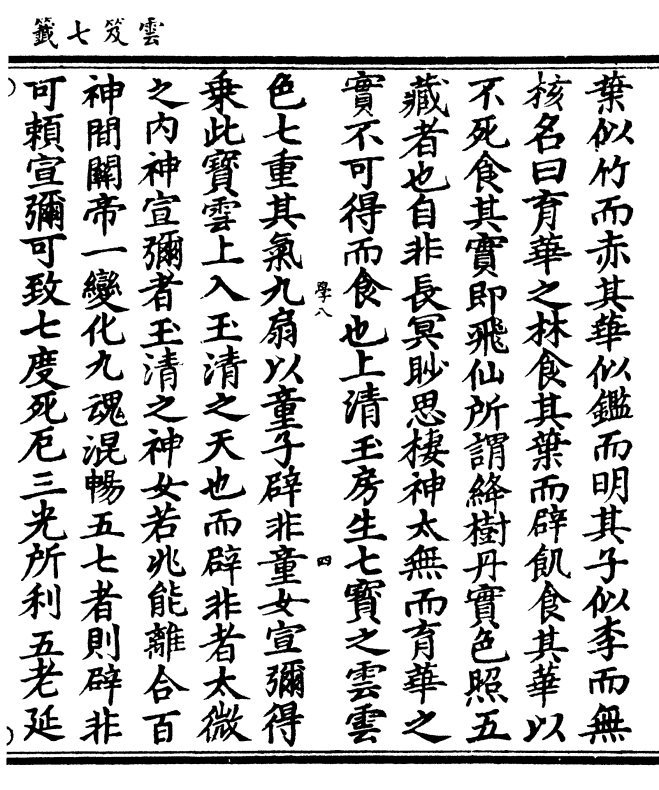 雲笈七籤
葉似竹而赤其華似鑑而明其子似李而無
核名曰育華之林食其葉而辟飢食其華以
不死食其實即飛仙所謂絳樹丹實色照五
藏者也自非長冥眇思棲神太無而育華之
實不可得而食也上清玉房生七寶之雲雲
學八
四
色七重其氣九扇以童子辟非童女宣彌得
乗此寶雲上入玉清之天也而辟非者太微
之内神宣彌者玉清之神女若兆能離合百
神間關帝一變化九魂混暢五七者則辟非
可頼宣彌可致七度死厄三光所利五老延